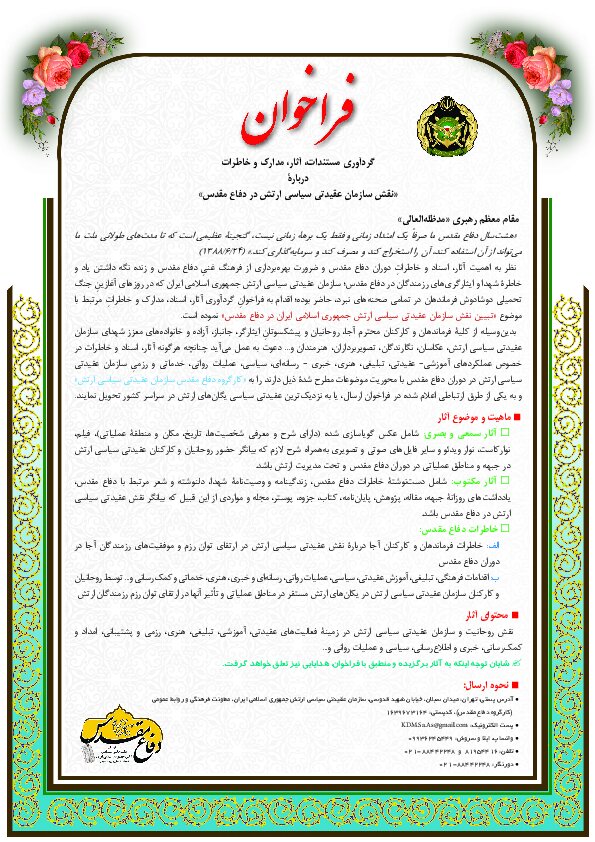 فراخوان
گردآوری مستندات، آثار، مدارک و خاطرات
دربارهٔ
«نقش سازمان عقیدتی سیاسی ارتش در دفاع مقدس»
مقام معظم رهبری «مدظله‌العالی»
«هشت‌سال دفاع مقدس ما صرفاً یک امتداد زمانی و فقط یک برههٔ زمانی نیست، گنجینهٔ عظیمی است که تا مدت‌های طولانی ملت ما
می‌تواند از آن استفاده کند، آن را استخراج کند و مصرف کند و سرمایه‌گذاری کند.» (۱۳۸۸/۶/۲۴)
نظر به اهمیت آثار، اسناد و خاطرات دوران دفاع مقدس و ضرورت بهره‌برداری از فرهنگ غنی دفاع مقدس و زنده نگه داشتن یاد و
خاطرهٔ شهدا و ایثارگری‌های رزمندگان در دفاع مقدس؛ سازمان عقیدتی سیاسی ارتش جمهوری اسلامی ایران که در روزهای آغازین جنگ
تحمیلی دوشادوش فرماندهان در تمامی صحنه‌های نبرد، حاضر بوده؛ اقدام به فراخوان گردآوری آثار، اسناد، مدارک و خاطرات مرتبط با
موضوع «تبیین نقش سازمان عقیدتی سیاسی ارتش جمهوری اسلامی ایران در دفاع مقدس» نموده است.
بدین‌وسیله از کلیهٔ فرماندهان و کارکنان محترم آجا، روحانیان و پیشکسوتان ایثارگر، جانباز، آزاده و خانواده‌های معزز شهدای سازمان
عقیدتی سیاسی ارتش، عکاسان، نگارندگان، تصویربرداران، هنرمندان و... دعوت به عمل می‌آید چنانچه هرگونه آثار، اسناد و خاطرات در
خصوص عملکردهای آموزشی- عقیدتی، تبلیغی، هنری، خبری - رسانه‌ای، سیاسی، عملیات روانی، خدماتی و رزمی سازمان عقیدتی
سیاسی ارتش در دوران دفاع مقدس با محوریت موضوعات مطرح شدهٔ ذیل دارند را به «کارگروه دفاع مقدس سازمان عقیدتی سیاسی ارتش»
و به یکی از طرق ارتباطی اعلام شده در فراخوان ارسال، یا به نزدیک‌ترین عقیدتی سیاسی یگان‌های ارتش در سراسر کشور تحویل نمایند.
■ ماهیت و موضوع آثار
□ آثار سمعی و بصری: شامل عکس گویاسازی شده (دارای شرح و معرفی شخصیت‌ها، تاریخ، مکان و منطقهٔ عملیاتی)، فیلم،
نوار کاست، نوار ویدئو و سایر فایل‌های صوتی و تصویری به‌همراه شرح لازم که بیانگر حضور روحانیان و کارکنان عقیدتی سیاسی ارتش
در جبهه و مناطق عملیاتی در دوران دفاع مقدس و تحت مدیریت ارتش باشد.
□ آثار مکتوب: شامل دست‌نوشتهٔ خاطرات دفاع مقدس، زندگینامه و وصیت‌نامهٔ شهدا، دلنوشته و شعر مرتبط با دفاع مقدس،
یادداشت‌های روزانهٔ جبهه، مقاله، پژوهش، پایان‌نامه، کتاب، جزوه، پوستر، مجله و مواردی از این قبیل که بیانگر نقش عقیدتی سیاسی
ارتش در دفاع مقدس باشد.
□ خاطرات دفاع مقدس:
الف: خاطرات فرماندهان و کارکنان آجا دربارهٔ نقش عقیدتی سیاسی ارتش در ارتقای توان رزم و موفقیت‌های رزمندگان آجا در
دوران دفاع مقدس
ب: اقدامات فرهنگی، تبلیغی، آموزش عقیدتی، سیاسی، عملیات روانی، رسانه‌ای و خبری، هنری، خدماتی و کمک رسانی و... توسط روحانیان
و کارکنان سازمان عقیدتی سیاسی ارتش در یکان‌های ارتش مستقر در مناطق عملیاتی و تأثیر آنها در ارتقای توان رزم رزمندگان ارتش
■ محتوای آثار
نقش روحانیت و سازمان عقیدتی سیاسی ارتش در زمینهٔ فعالیت‌های عقیدتی، آموزشی، تبلیغی، هنری، رزمی و پشتیبانی، امداد و
کمک‌رسانی، خبری و اطلاع‌رسانی، سیاسی و عملیات روانی و...
شایان توجه اینکه به آثار برگزیده و منطبق با فراخوان، هدایایی نیز تعلق خواهد گرفت.
■ نحوه ارسال:
● آدرس پستی: تهران، میدان سبلان، خیابان شهید قدوسی، سازمان عقیدتی سیاسی ارتش جمهوری اسلامی ایران، معاونت فرهنگی و روابط عمومی
(کارگروه دفاع مقدس)، کدپستی: ۱۶۳۹۶۷۳۱۶۴
● پست الکترونیک: KDMS.aAs@gmail.com
● واتساپ، ایتا و سروش: ۰۹۹۳۶۲۴۵۴۴۹
● تلفن: ۸۱۹۵۴۴۱۶ و ۰۲۱-۸۸۴۴۲۲۴۸
● دورنگار: ۰۲۱-۸۸۴۴۲۲۴۸
دفاع مقدس